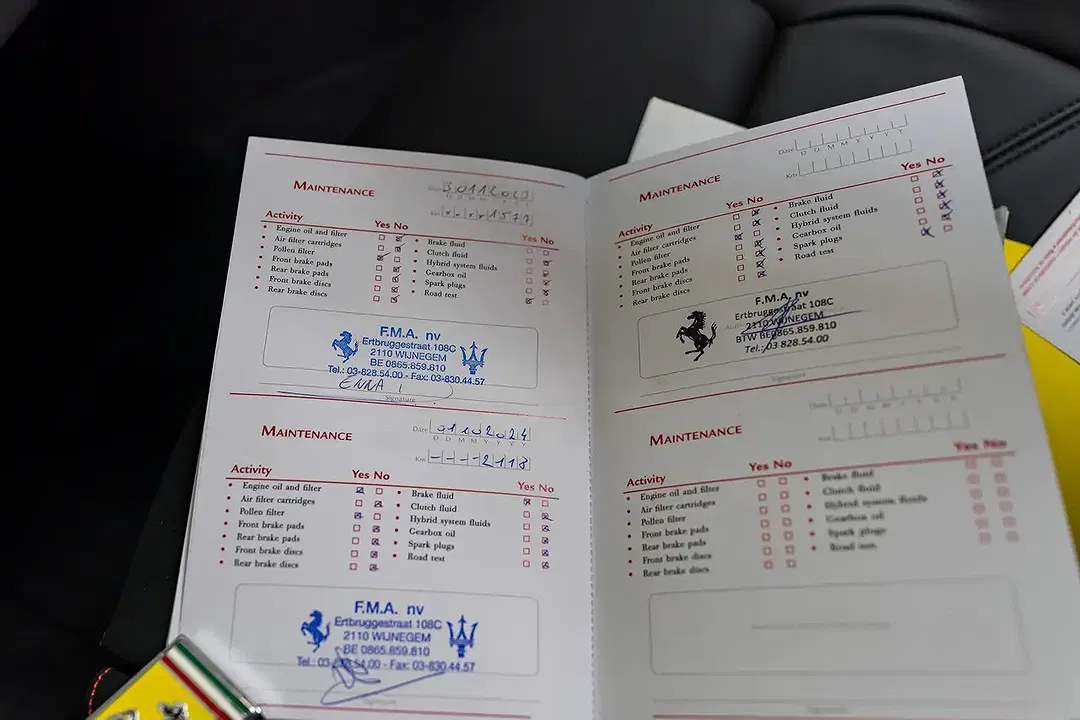 MAINTENANCE
Date 30112023
D D M M Y Y Y Y
Km x x x x 1577
Activity Yes No Yes No
Engine oil and filter
Air filter cartridges
Pollen filter
Front brake pads
Rear brake pads
Front brake discs
Rear brake discs
Brake fluid
Clutch fluid
Hybrid system fluids
Gearbox oil
Spark plugs
Road test
F.M.A. nv
Ertbruggestraat 108C
2110 WIJNEGEM
BE 0865.859.810
Tel.: 03-828.54.00 - Fax: 03-830.44.57
Signature
MAINTENANCE
Date 01102024
D D M M Y Y Y Y
Km ----2118
Activity Yes No Yes No
Engine oil and filter
Air filter cartridges
Pollen filter
Front brake pads
Rear brake pads
Front brake discs
Rear brake discs
Brake fluid
Clutch fluid
Hybrid system fluids
Gearbox oil
Spark plugs
Road test
F.M.A. nv
Ertbruggestraat 108C
2110 WIJNEGEM
BE 0865.859.810
Tel.: 03-828.54.00 - Fax: 03-830.44.57
Signature
MAINTENANCE
Date
D D M M Y Y Y Y
Km
Activity Yes No Yes No
Engine oil and filter
Air filter cartridges
Pollen filter
Front brake pads
Rear brake pads
Front brake discs
Rear brake discs
Brake fluid
Clutch fluid
Hybrid system fluids
Gearbox oil
Spark plugs
Road test
F.M.A. nv
Ertbruggestraat 108C
2110 WIJNEGEM
BTW BE0865.859.810
Tel.: 03 828.54.00
Signature
MAINTENANCE
Date
D D M M Y Y Y Y
Km
Activity Yes No Yes No
Engine oil and filter
Air filter cartridges
Pollen filter
Front brake pads
Rear brake pads
Front brake discs
Rear brake discs
Brake fluid
Clutch fluid
Hybrid system fluids
Gearbox oil
Spark plugs
Road test